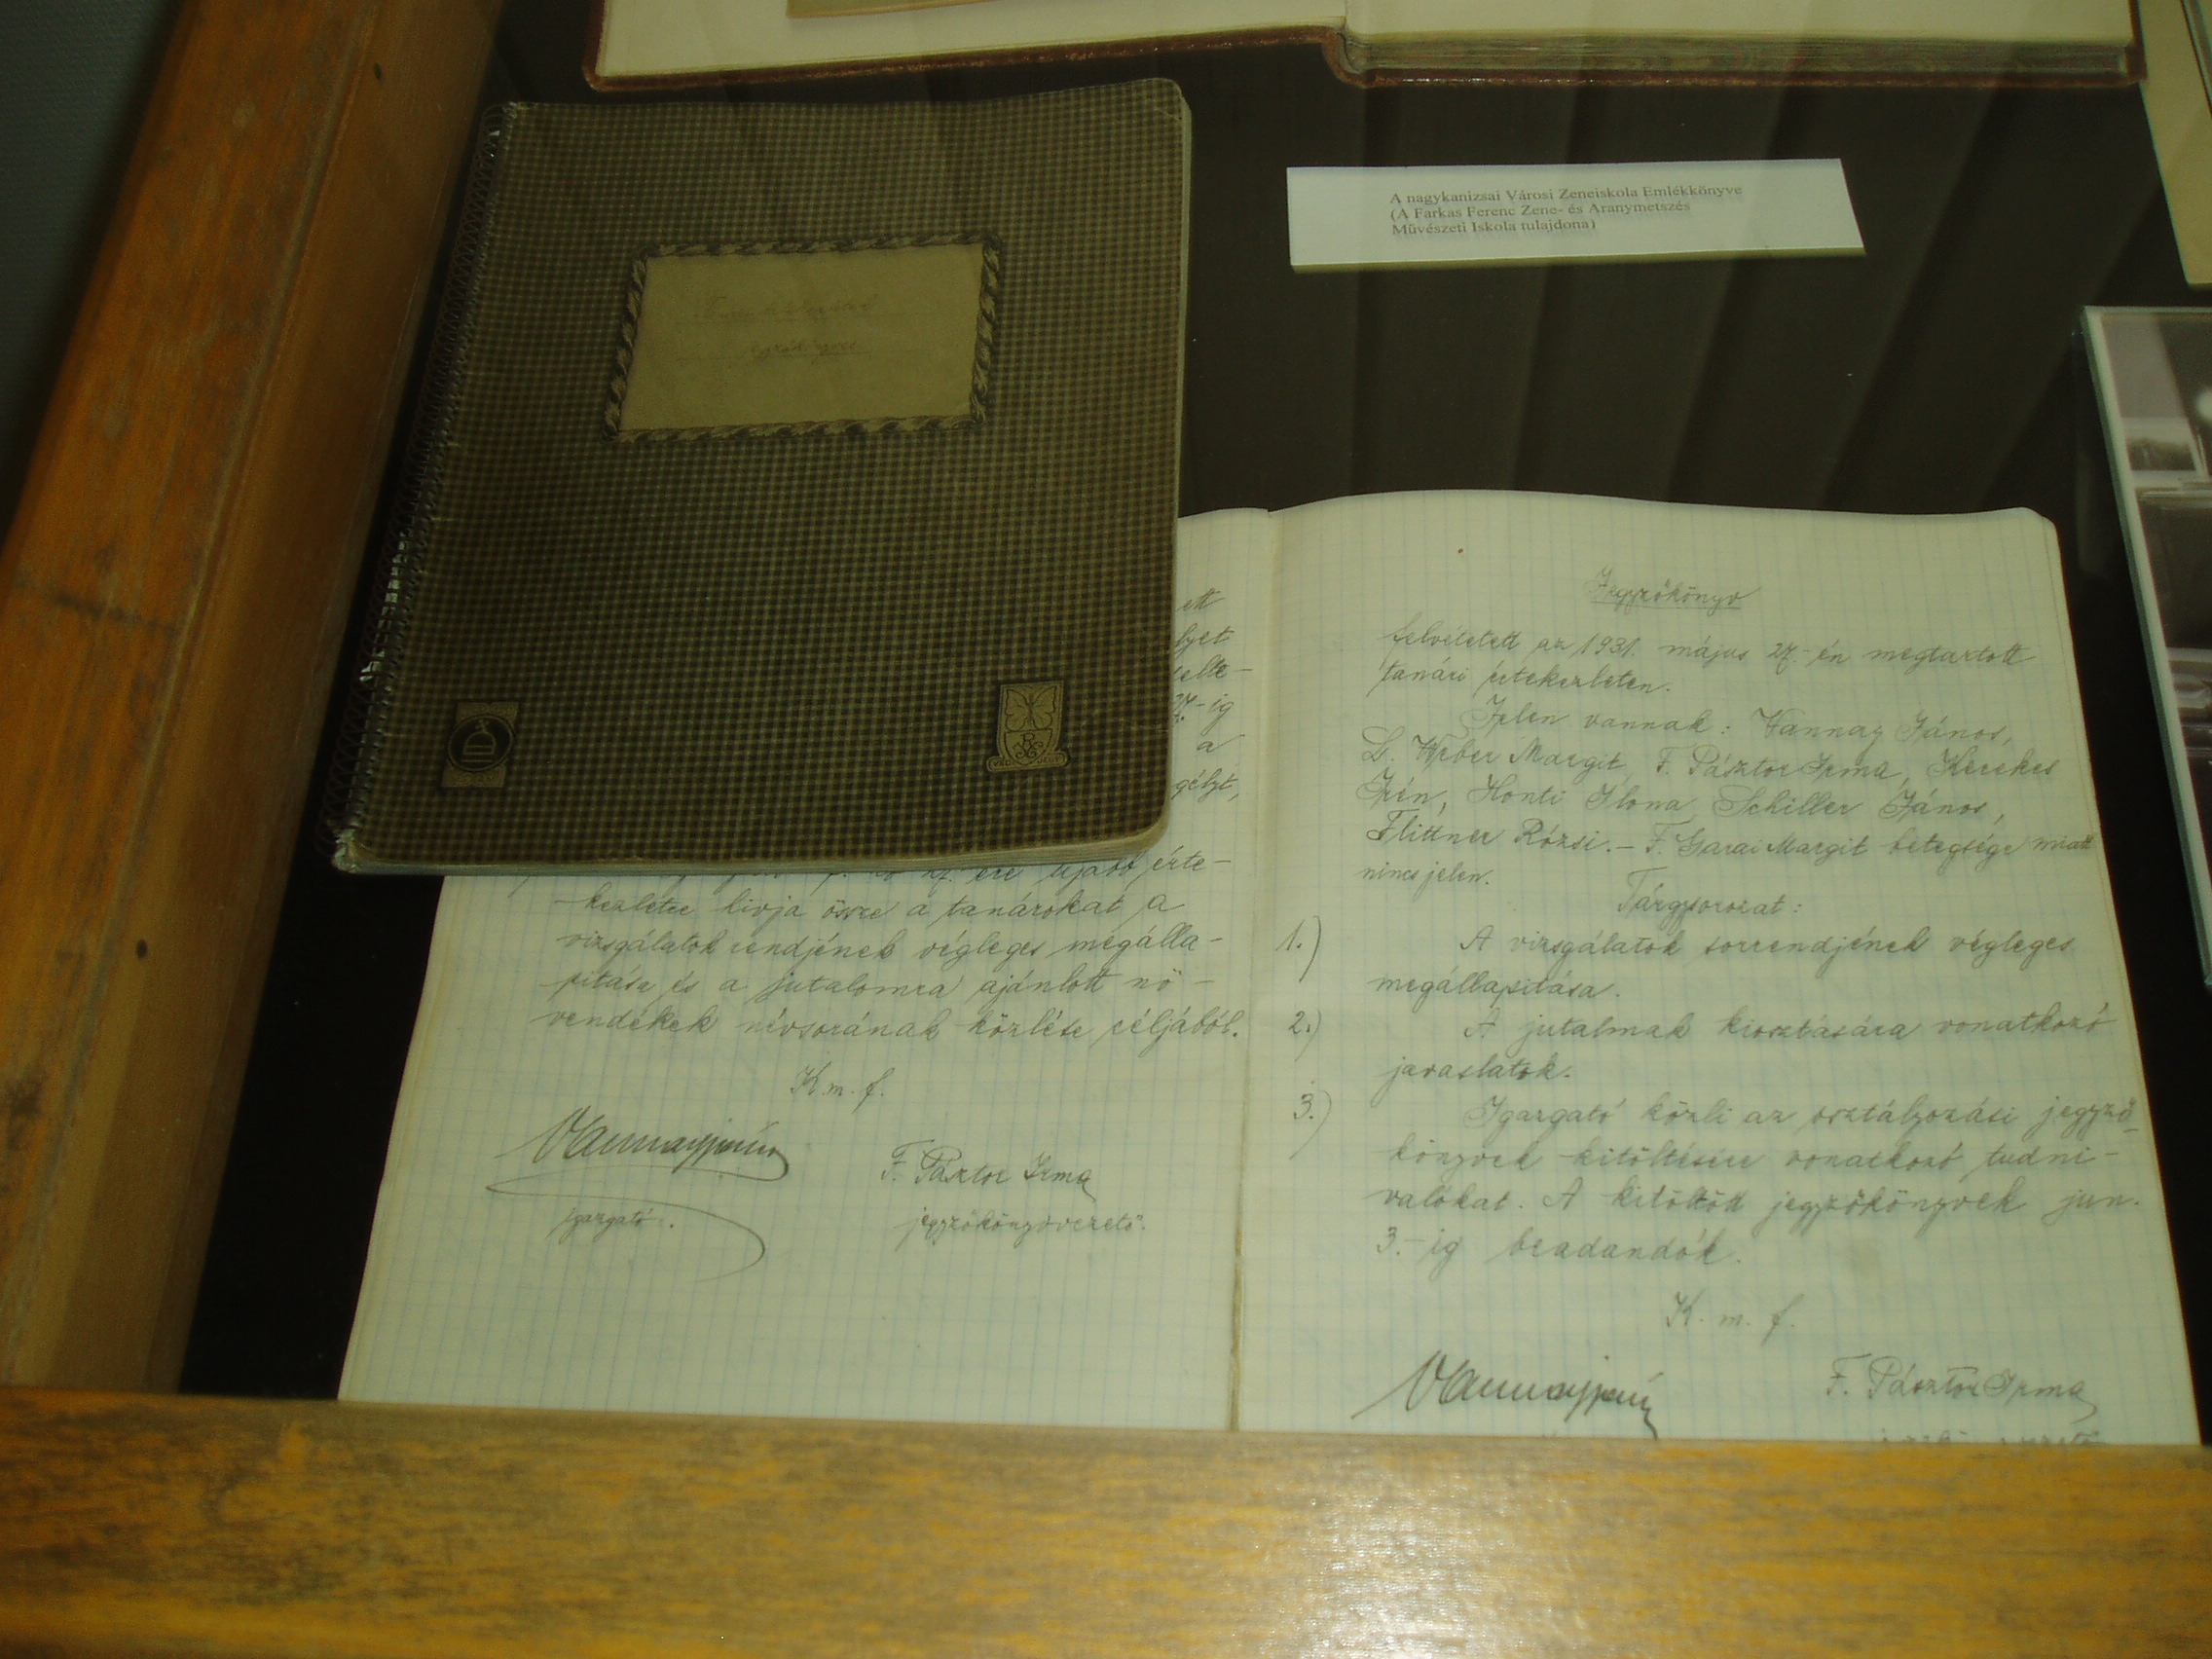 A nagykanizsai Városi Zeneiskola Emlékkönyve
(A Farkas Ferenc Zene- és Aranymetszés
Művészeti Iskola tulajdona)
ett
lyet
27.-ig
a
gélyt,
ére újabb érte-
kezletre hivja össze a tanárokat a
vizsgálatok rendjének végleges megálla-
pitása és a jutalomra ajánlott nö-
vendékek névsorának közlése céljából.
K. m. f.
Vannay János
igazgató.
F. Pásztor Irma
jegyzőkönyvvezető.
Jegyzőkönyv
felvétetett az 1931. május 27.-én megtartott
tanári értekezleten.
Jelen vannak: Vannay János,
L. Weber Margit, F. Pásztor Irma, Kerekes
Irén, Honti Ilona, Schiller János,
Flittner Rózsi.- F. Garai Margit betegsége miatt
nincs jelen.
Tárgysorozat:
1.) A vizsgálatok sorrendjének végleges
megállapitása.
2.) A jutalmak kiosztására vonatkozó
javaslatok.
3.) Igazgató közli az osztályozási jegyző-
könyvek kitöltésére vonatkozó tudni-
valókat. A kitöltött jegyzőkönyvek jun.
3.-ig beadandók.
K. m. f.
Vannay János
F. Pásztor Irma